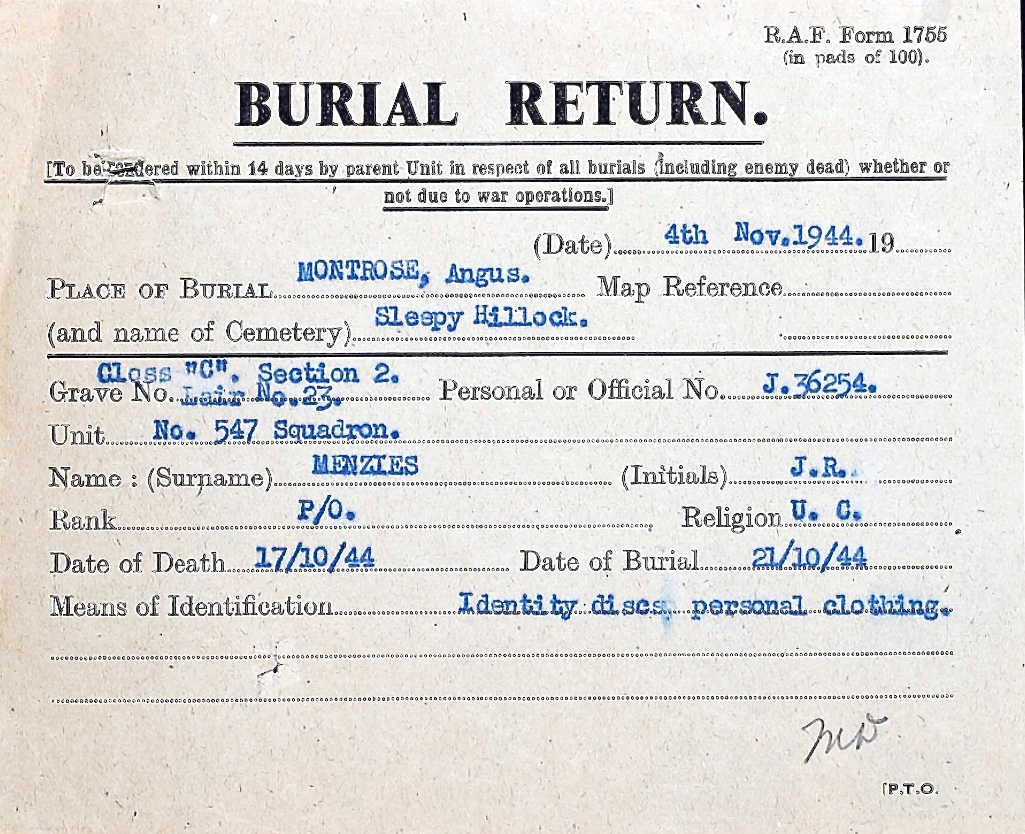 R.A.F. Form 1755
(in pads of 100).
BURIAL RETURN.
[To be rendered within 14 days by parent Unit in respect of all burials (including enemy dead) whether or
not due to war operations.]
(Date) 4th Nov.1944. 19
PLACE OF BURIAL MONTROSE, Angus. Map Reference
(and name of Cemetery) Sleepy Hillock.
Class "C". Section 2.
Grave No. Lair No.23. Personal or Official No. J.36254.
Unit No. 547 Squadron.
Name : (Surname) MENZIES (Initials) J.R.
Rank P/O. Religion U. C.
Date of Death 17/10/44 Date of Burial 21/10/44
Means of Identification Identity discs, personal clothing.
[P.T.O.